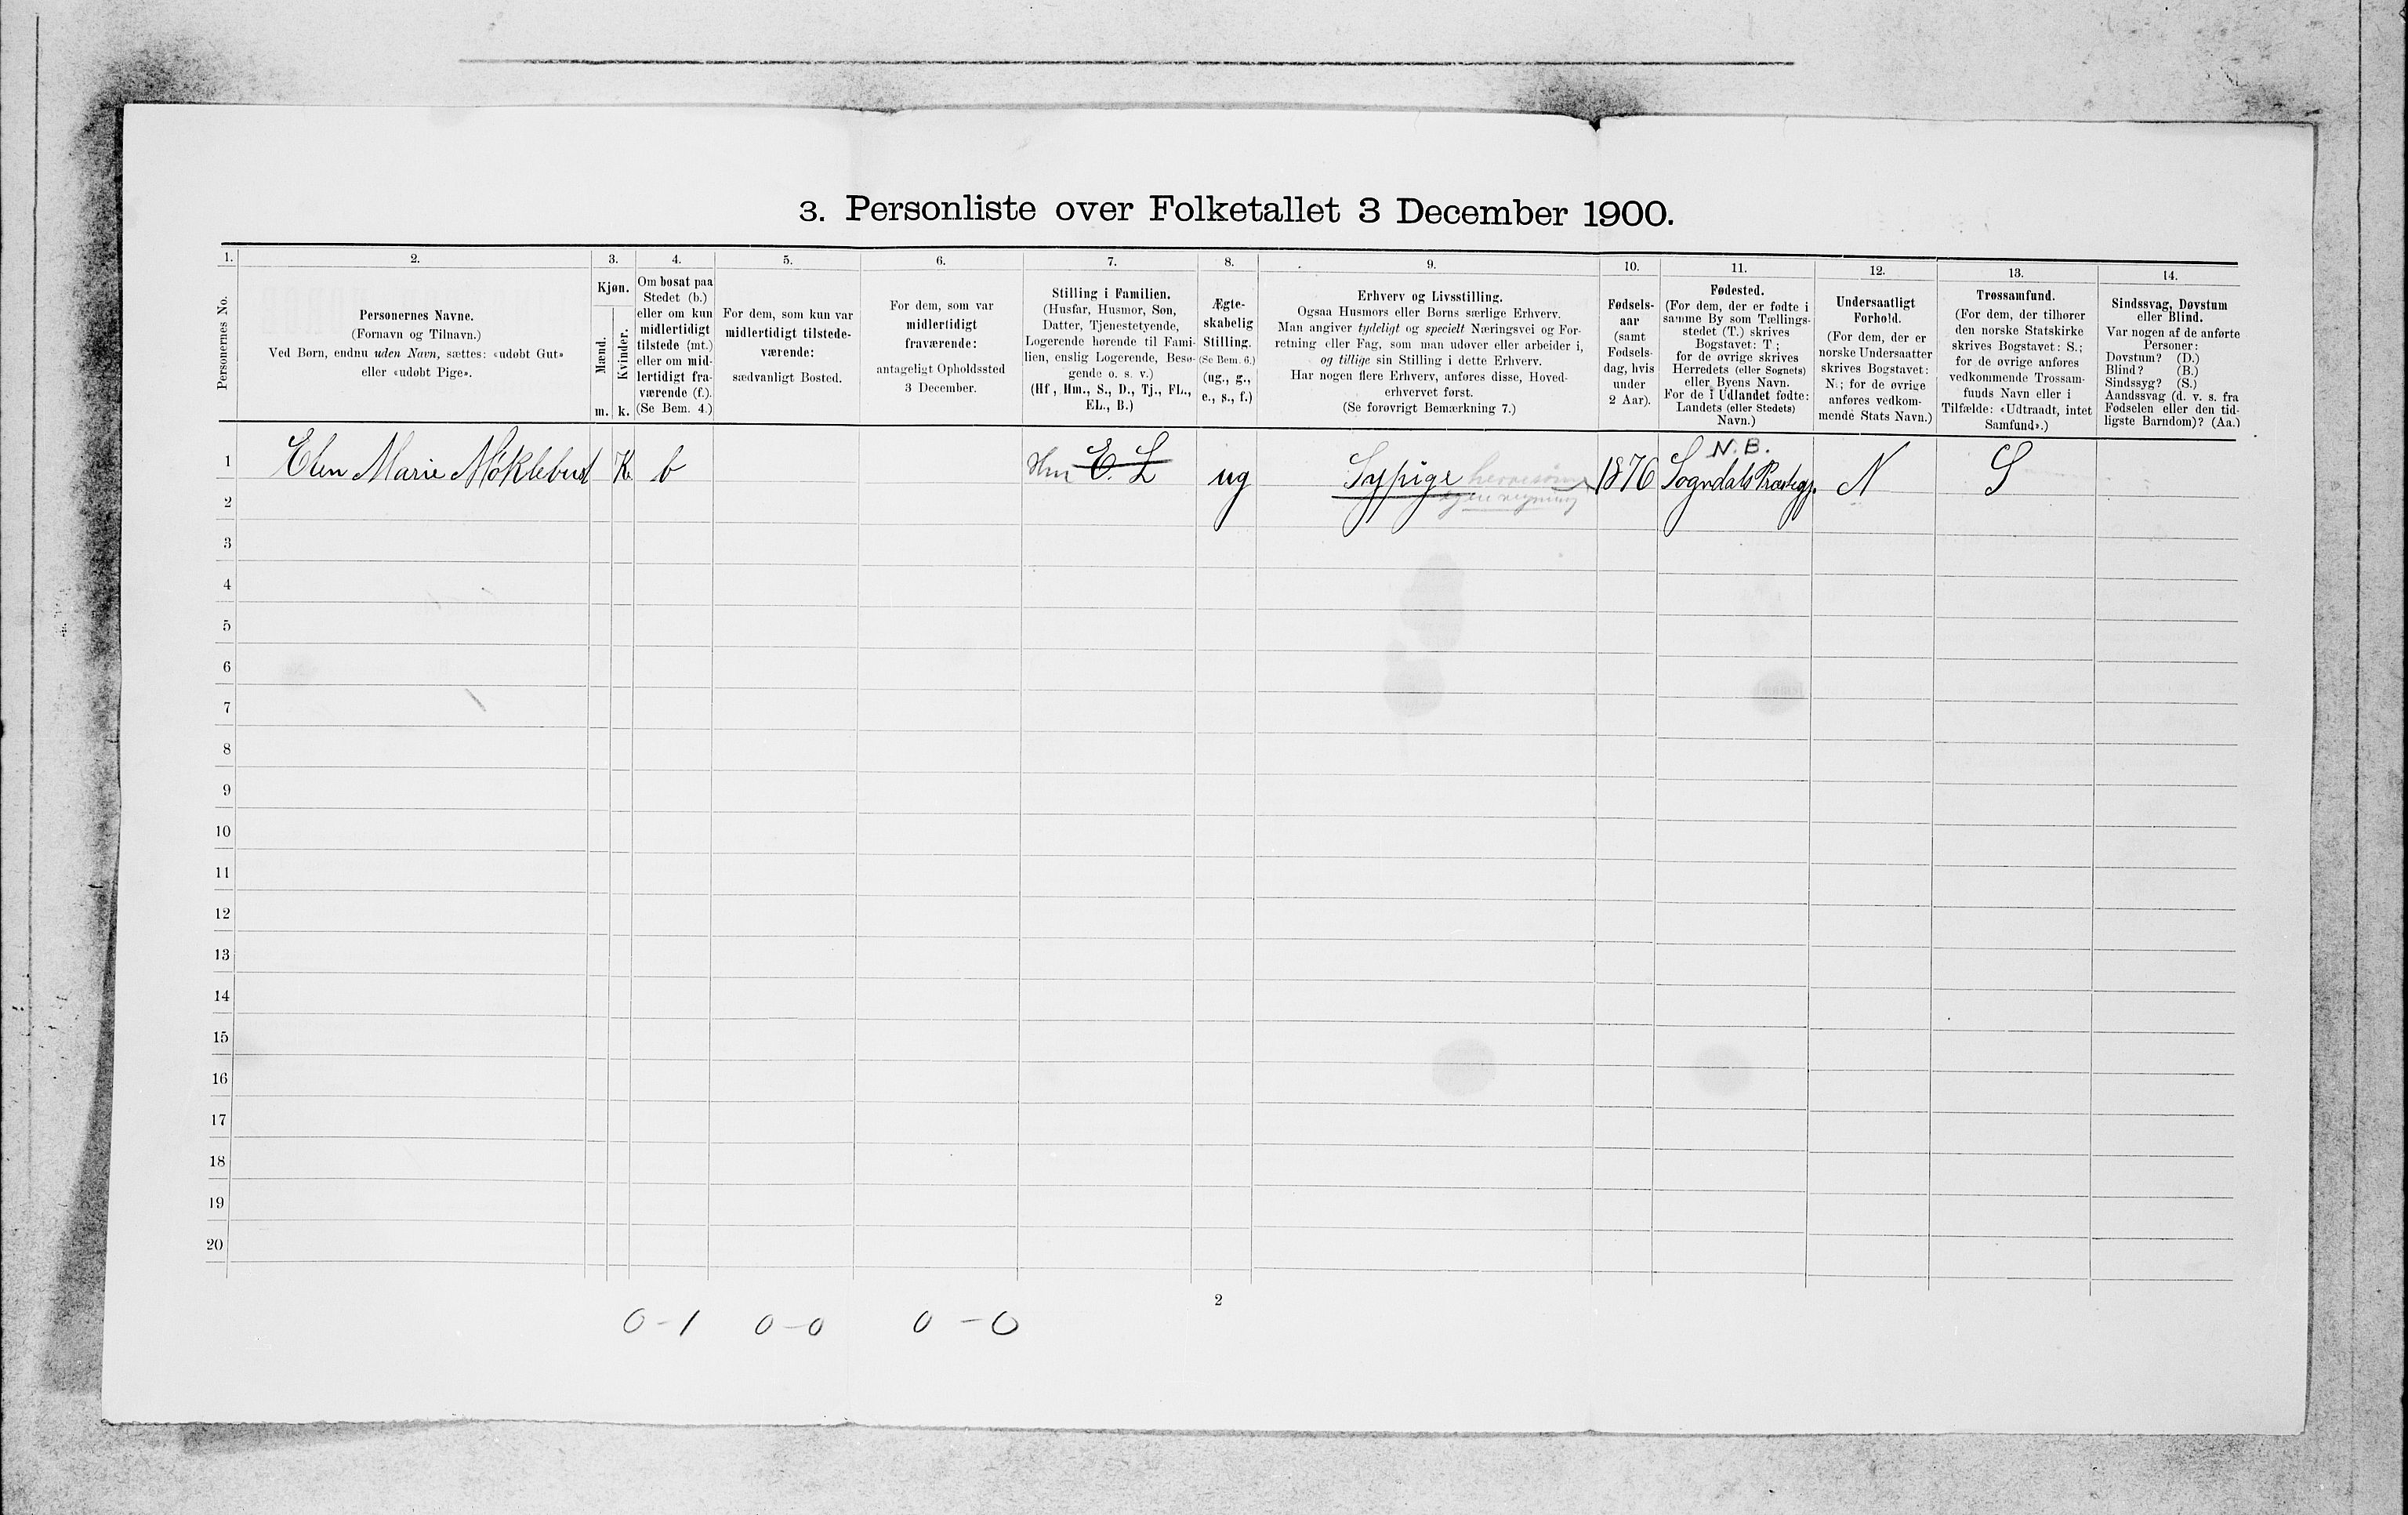 3. Personliste over Folketallet 3 December 1900.
1. 2. 3. 4. 5. 6. 7. 8. 9. 10. 11. 12. 13. 14.
Personernes No.
Personernes Navne.
(Fornavn og Tilnavn.)
Ved Børn, endnu uden Navn, sættes: «udøbt Gut»
eller «udøbt Pige».
Kjøn.
Mænd.
Kvinder.
m. k.
Om bosat paa
Stedet (b.)
eller om kun
midlertidigt
tilstede (mt.)
eller om mid-
lertidigt fra-
værende (f.).
(Se Bem. 4.)
For dem, som kun var
midlertidigt tilstede-
værende:
sædvanligt Bosted.
For dem, som var
midlertidigt
fraværende:
antageligt Opholdssted
3 December.
Stilling i Familien.
(Husfar, Husmor, Søn,
Datter, Tjenestetyende,
Logerende hørende til Fami-
lien, enslig Logerende, Besø-
gende o. s. v.)
(Hf, Hm., S., D., Tj., FL.,
EL., B.)
Ægte-
skabelig
Stilling.
(Se Bem. 6.)
(ug., g.,
e., s., f.)
Erhverv og Livsstilling.
Ogsaa Husmors eller Børns særlige Erhverv.
Man angiver tydeligt og specielt Næringsvei og For-
retning eller Fag, som man udøver eller arbeider i,
og tillige sin Stilling i dette Erhverv.
Har nogen flere Erhverv, anføres disse, Hoved-
erhvervet først.
(Se forøvrigt Bemærkning 7.)
Fødsels-
aar
(samt
Fødsels-
dag, hvis
under
2 Aar).
Fødested.
(For dem, der er fødte i
samme By som Tællings-
stedet (T.) skrives
Bogstavet: T;
for de øvrige skrives
Herredets (eller Sognets)
eller Byens Navn.
For de i Udlandet fødte:
Landets (eller Stedets)
Navn.)
Undersaatligt
Forhold.
(For dem, der er
norske Undersaatter
skrives Bogstavet:
N.; for de øvrige
anføres vedkom-
mende Stats Navn.)
Trossamfund.
(For dem, der tilhører
den norske Statskirke
skrives Bogstavet: S.;
for de øvrige anføres
vedkommende Trossam-
funds Navn eller i
Tilfælde: «Udtraadt, intet
Samfund».)
Sindssvag, Døvstum
eller Blind.
Var nogen af de anførte
Personer:
Døvstum? (D.)
Blind? (B.)
Sindssyg? (S.)
Aandssvag (d. v. s. fra
Fødselen eller den tid-
ligste Barndom)? (Aa.)
N. B.
1 Elen Marie Møklebust K. b Hm E. L ug Sypige 1876 Sogndals Præstegj. N S
egen regning
2
3
4
5
6
7
8
9
10
11
12
13
14
15
16
17
18
19
20
2
0-1 0-0 0-0